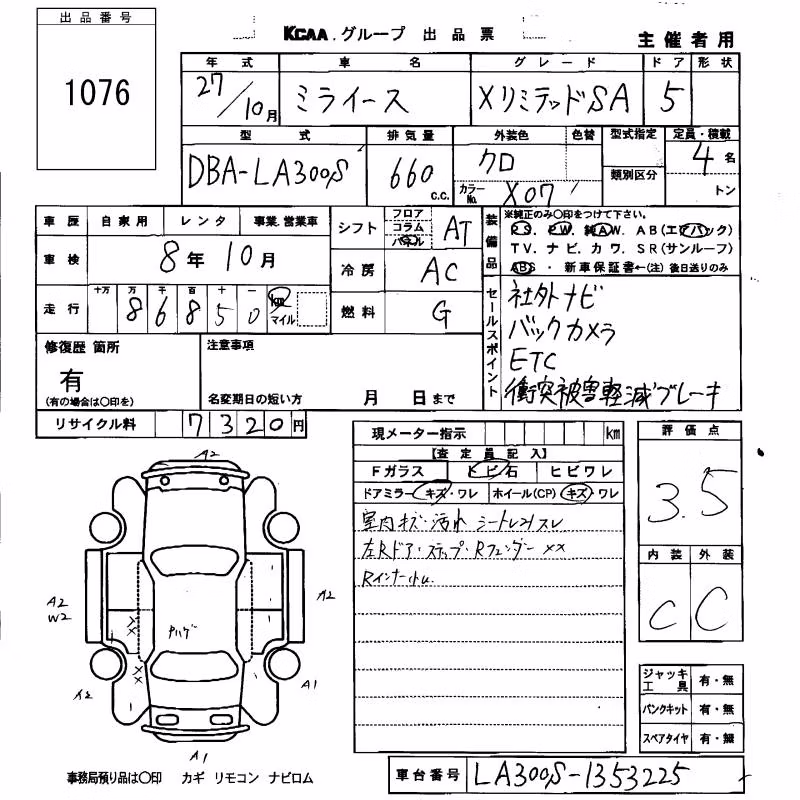 出品番号
1076
KCAA.グループ 出品票
主催者用
年式 車名 グレード ドア 形状
27/10月 ミライース XリミテッドSA 5
型式 排気量 外装色 色替 型式指定 定員・積載
DBA-LA300S 660 c.c. クロ 類別区分 4名
カラーNo. X07 トン
車歴 自家用 レンタ 事業.営業車
車検 8年10月
走行 十万 万 千 百 十 一
8 6 8 5 0 km マイル
シフト フロア コラム パネル AT
冷房 AC
燃料 G
装備品 ※純正のみ〇印をつけて下さい。
P S. P W. 純AW. AB(エアバック)
TV. ナビ. カワ. SR(サンルーフ)
ABS・新車保証書←(注)後日送りのみ
セールスポイント
社外ナビ
バックカメラ
ETC
衝突被害軽減ブレーキ
修復歴 箇所
有
(有の場合は〇印を)
注意事項
名変期日の短い方 月 日まで
リサイクル料 7320円
現メーター指示 km
【査定員記入】
Fガラス ヒビ石 ヒビワレ
ドアミラー キズ・ワレ ホイール(CP) キズ・ワレ
室内キズ・汚れ シートレスレ
左Rドア・ステップ・Rフェンダー XX
Rインナー小u.
評価点
3.5
内装 外装
C C
ジャッキ工具 有・無
パンクキット 有・無
スペアタイヤ 有・無
A2
A2
W2
A2
XX
ヤハゲ
XX
A2
A1
A1
事務局預り品は〇印 カギ リモコン ナビロム
車台番号 LA300S-1353225